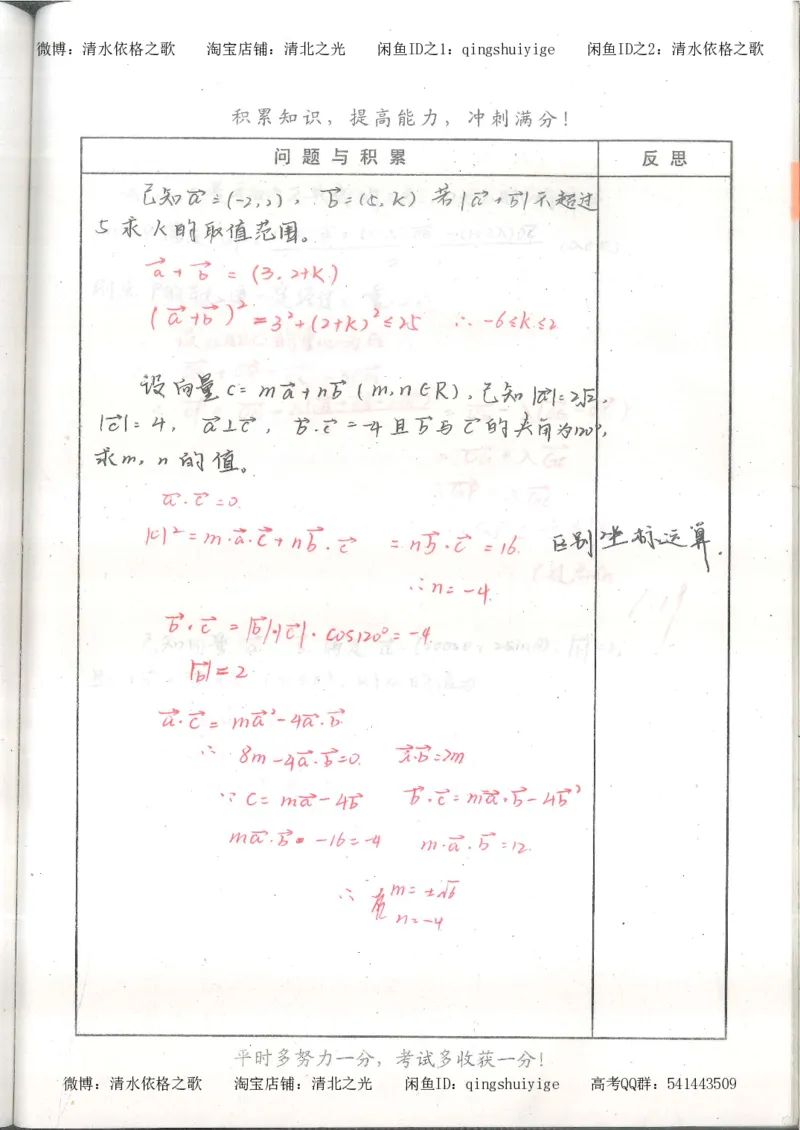 微博：清水依格之歌 淘宝店铺：清北之光 闲鱼ID之1：qingshuiyige 闲鱼ID之2：清水依格之歌
积累知识，提高能力，冲刺满分！
问题与积累 反思
已知a⃗=(-2,2)，b⃗=(5,K) 若|a⃗+b⃗|不超过
5求K的取值范围。
a⃗+b⃗=(3,2+K)
(a⃗+b⃗)²=3²+(2+K)²≤25 ∴-6≤K≤2
设向量c=ma⃗+nb⃗(m,n∈R)，已知|a⃗|=2√2，
|c⃗|=4，a⃗⊥c⃗，b⃗·c⃗=-4且b⃗与c⃗的夹角为120°，
求m，n的值。
a⃗·c⃗=0.
|c|²=m·a⃗·c⃗+nb⃗·c⃗ =nb⃗·c⃗=16. 区别坐标运算.
∴n=-4.
b⃗·c⃗=|b⃗|·|c⃗|·cos120°=-4
|b⃗|=2
a⃗·c⃗=ma⃗²-4a⃗·b⃗
∴ 8m-4a⃗·b⃗=0. a⃗·b⃗=2m
∵ c=ma⃗-4b⃗ b⃗·c⃗=ma⃗·b⃗-4b⃗²
ma⃗·b⃗-16=-4 m·a⃗·b⃗=12.
∴ m=±√6
n=-4
平时多努力一分，考试多收获一分！
微博：清水依格之歌 淘宝店铺：清北之光 闲鱼ID：qingshuiyige 高考QQ群：541443509